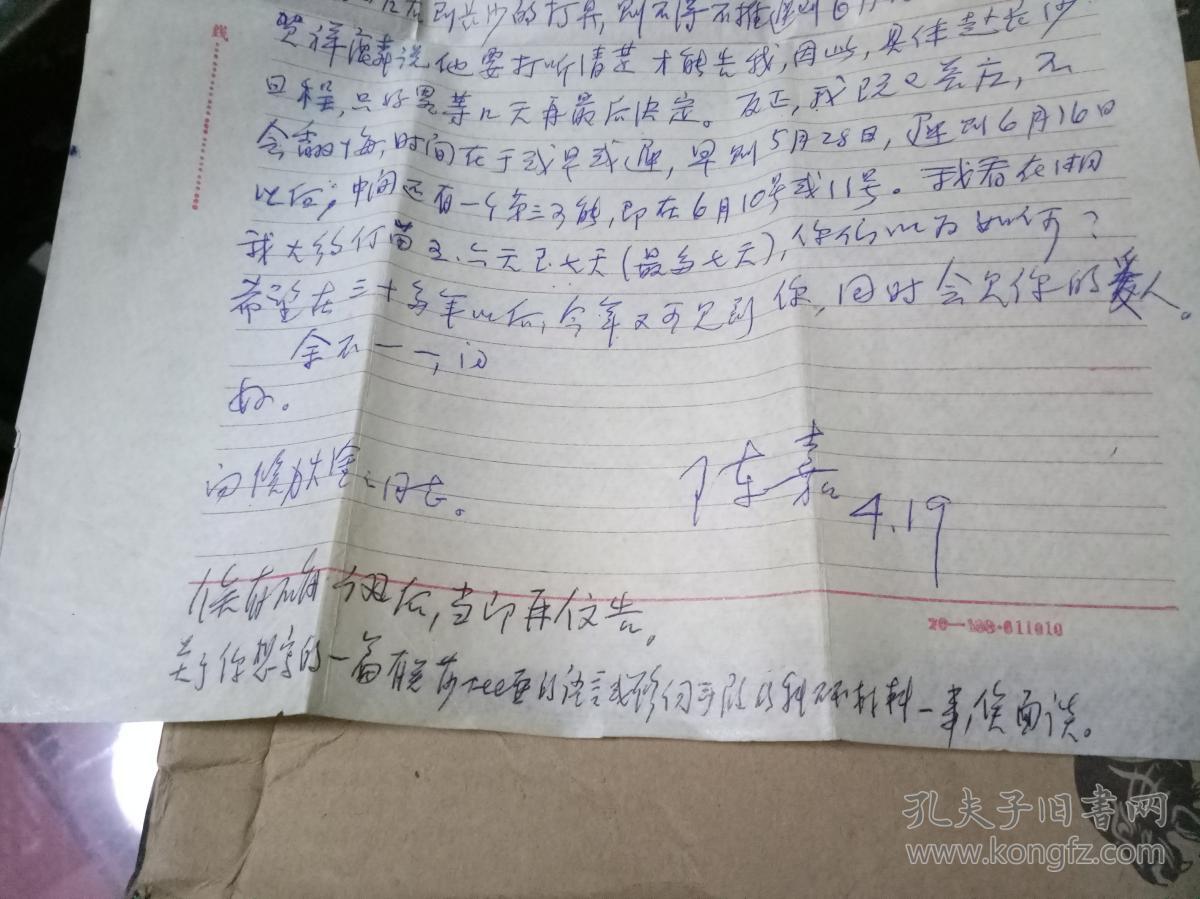 到长沙的打算,则不得不推迟到6月
贺祥麟说他要打听清楚才能告我,因此,具体赴长沙
日程,只好略等几天再最后决定。反正,我既已答应,不
会翻悔,时间在于或早或迟,早则5月28日,迟则6月16日
以后;中间还有一个第三可能,即在6月10号或11号。我看在
我大约停留五、六天至七天(最多七天),你们以为如何?
希望在三十多年以后,今年又可见到你,同时会见你的爱人。
余不一一,问
好。
问候 同志。
陈嘉
4.19
俟有 后,当即再信告。
关于你想写的一篇有关莎 的语言或修词手段的科研材料一事,俟面谈。
20—108·811010
孔夫子旧书网
www.kongfz.com